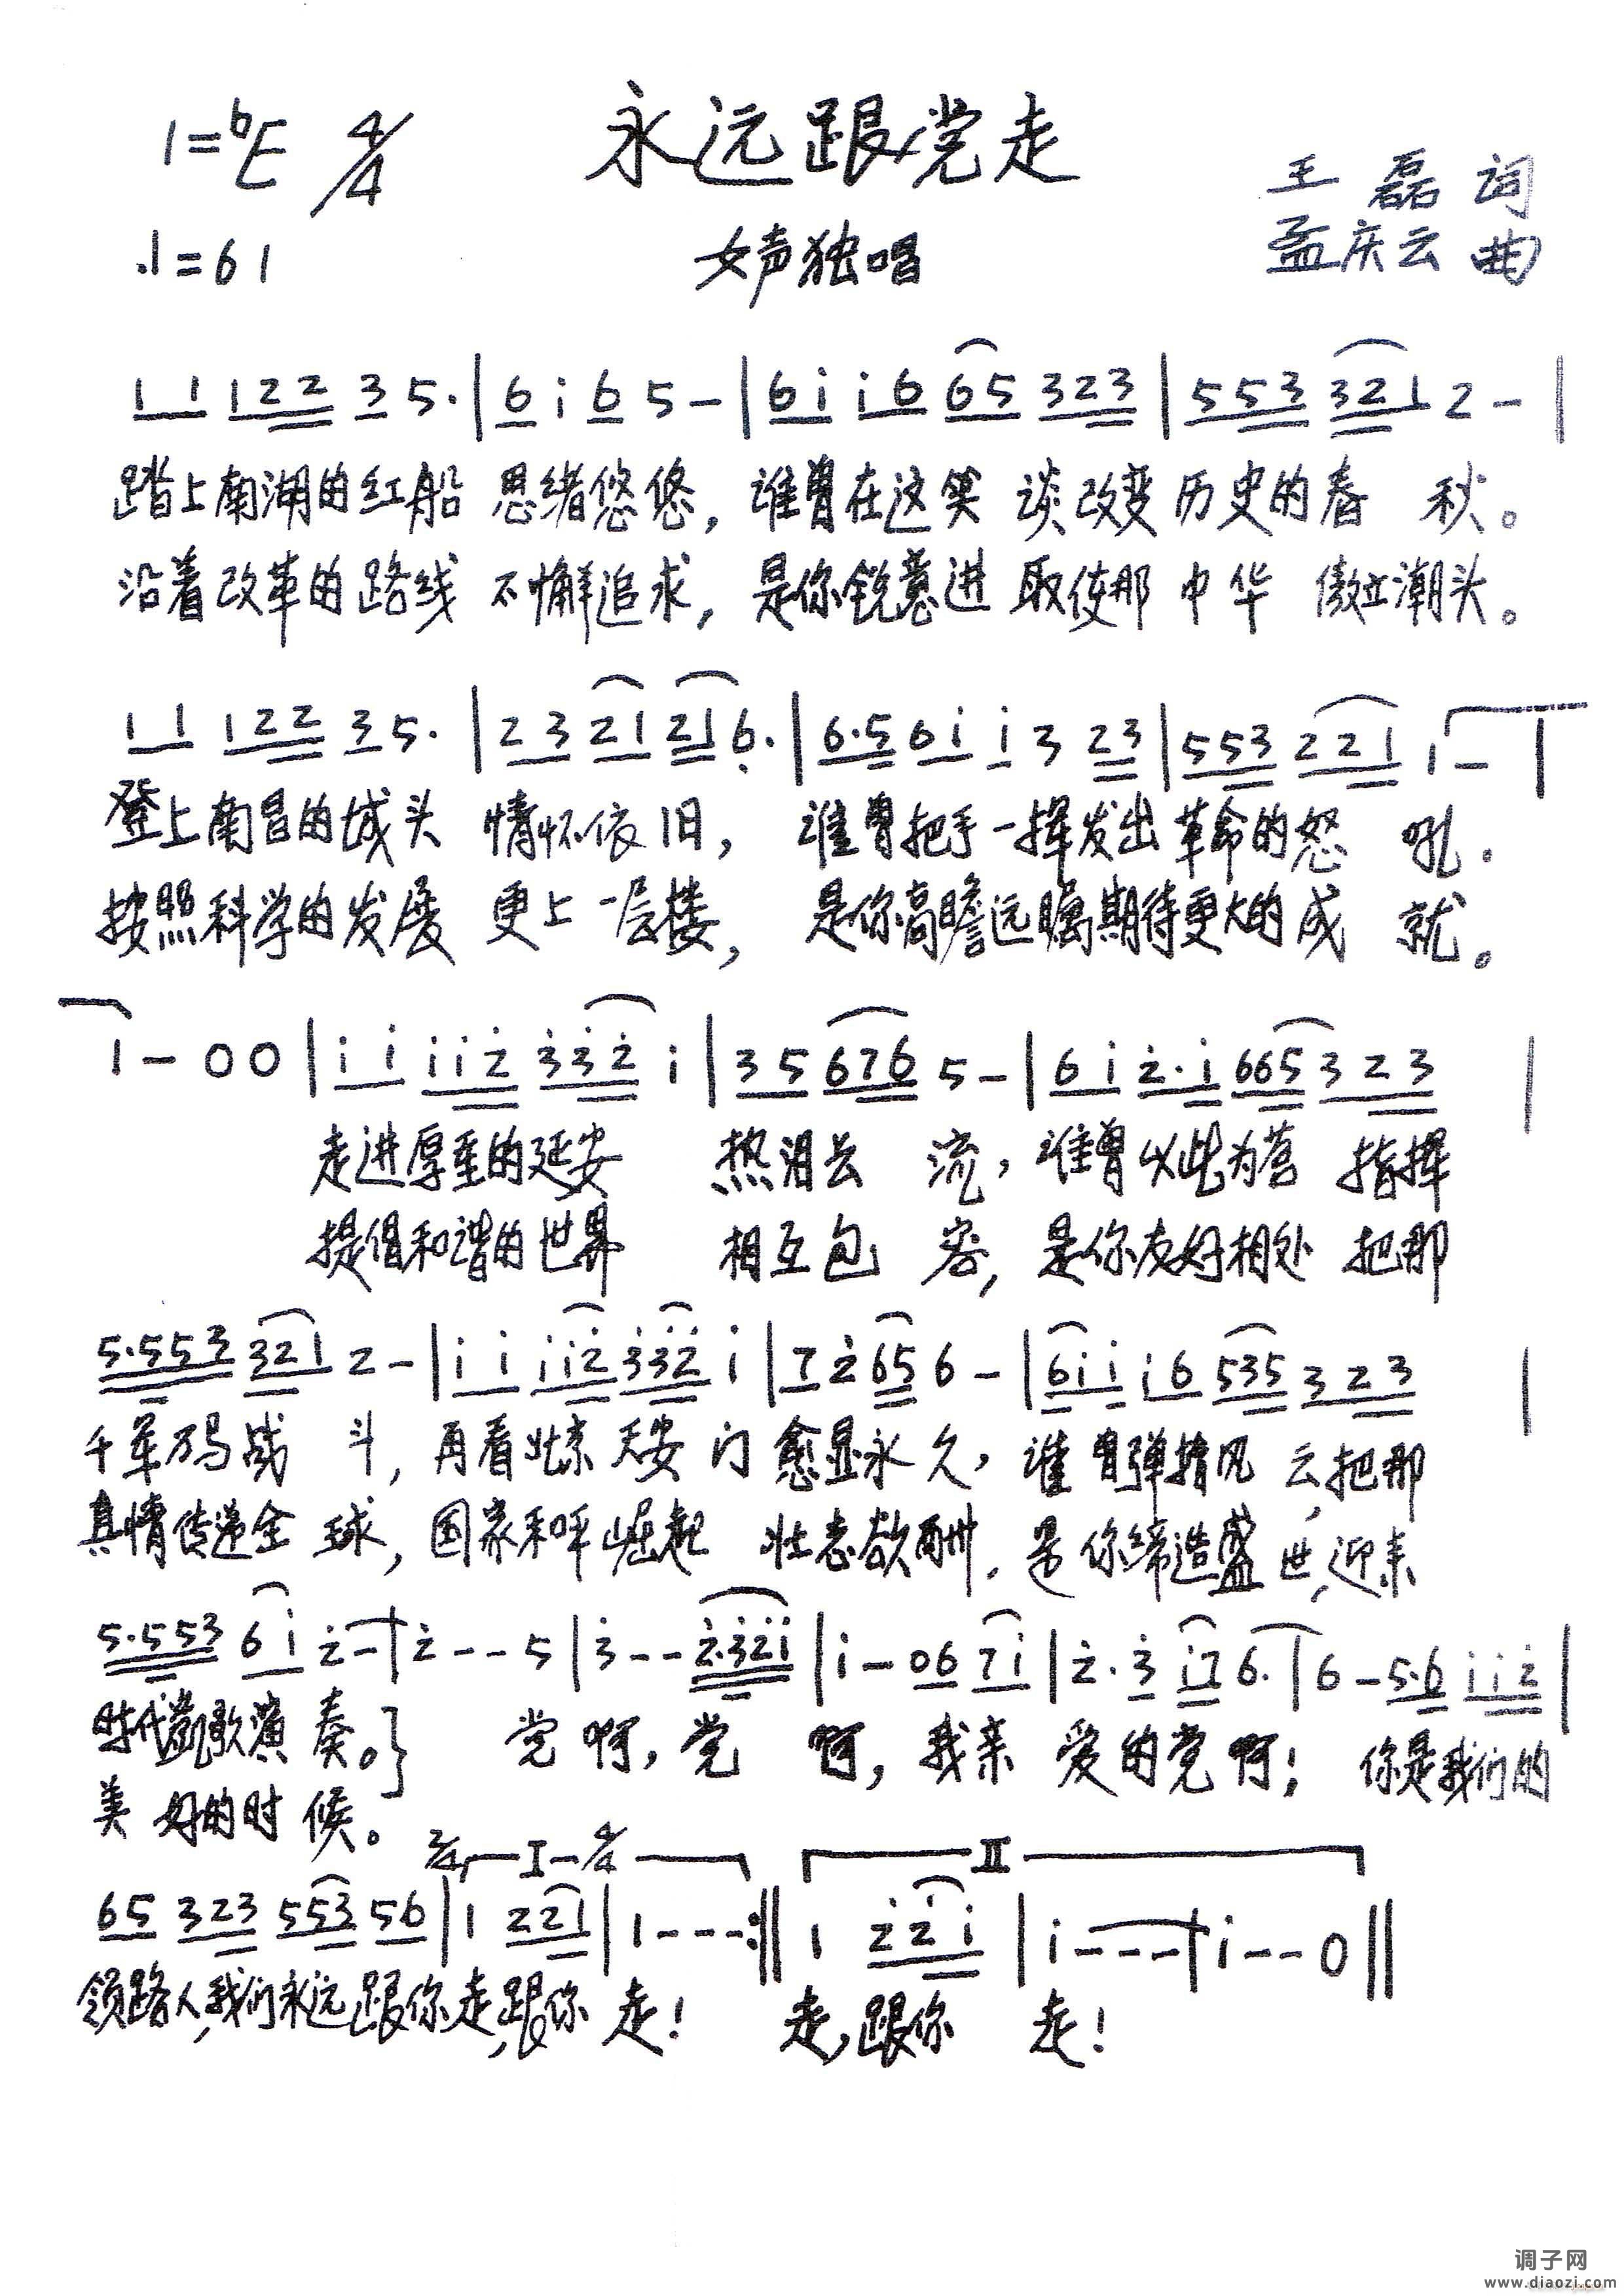 1=♭E 4/4 永远跟党走
王磊 词
♩=61 女声独唱 孟庆云 曲
1 1 1 2 2 3 5· | 6 i 6 5 – | 6 i i 6 6 5 3 2 3 | 5 5 3 3 2 1 2 – |
踏上南湖的红船 思绪悠悠，谁曾在这笑 谈改变历史的春 秋。
沿着改革的路线 不懈追求，是你锐意进 取使那 中华 傲立潮头。
1 1 1 2 2 3 5· | 2 3 2 1 2 1 6̣· | 6·5 6 i i 3 2 3 | 5 5 3 2 2 1 1 – |
登上南昌的城头 情怀依旧，谁曾把手一挥发出革命的怒 吼.
按照科学的发展 更上一层楼，是你高瞻远瞩期待更大的成 就。
1 – 0 0 | i i i i ż 3̇ 3̇ 2̇ i | 3 5 6 7 6 5 – | 6 i 2̇·i 6 6 5 3 2 3 |
走进厚重的延安 热泪长 流，谁曾以此为营 指挥
提倡和谐的世界 相互包 容，是你友好相处 把那
5·5 5 3 3 2 1 2 – | i i i i 2̇ 3̇ 3̇ 2̇ i | 7 2̇ 6 5 6 – | 6 i i i 6 5 3 5 3 2 3 |
千军万马战 斗，再看北京天安门 愈显永久，谁曾弹指风 云，把那
真情传递全 球，国家和平崛起 壮志欲酬，是你缔造盛世，迎来
5·5 5 3 6 i 2̇ – | 2̇ – – 5 | 3̇ – – 2̇·3̇ 2̇ i | i – 0 6 7 i | 2̇·3̇ i 7 6· | 6 – 5·6 i i 2̇ |
时代凯歌演 奏。} 党啊，党 啊，我亲 爱的党啊！ 你是我们的
美好的时 候。
2/4 I 4/4 II
6 5 3 2 3 5 5 3 5 6 | 1 2 2 1 | 1 – – – :‖ 1 2̇ 2̇ i | i – – – | i – – 0 ‖
领路人，我们永远跟你走，跟你 走！ 走，跟你 走！
调子网
www.diaozi.com